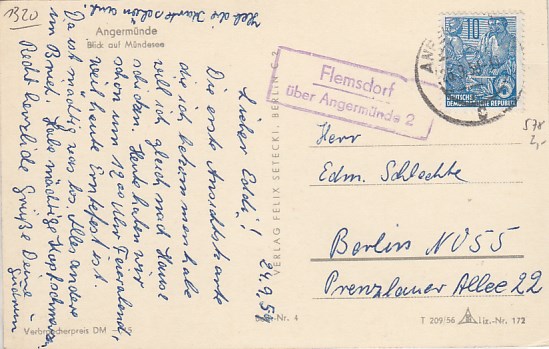 1320
Heb die Karte schön auf.
Angermünde
Blick auf Mündesee
24.9.57
Lieber Eddi!
Die erste Ansichtskarte
die ich bekommen habe
will ich gleich nach Hause
schicken. Heute haben wir
schon um 12.00 Uhr Feierabend,
weil heute Erntefest ist.
Da ist mächtig was los. Alles andere
im Brief. Habe mächtige Kopfschmerzen
Recht herzliche Grüße Deine
Gudrun
Verbraucherpreis DM
VERLAG FELIX SETECKI, BERLIN C 2
Flemsdorf
über Angermünde 2
10
DEUTSCHE DEMOKRATISCHE REPUBLIK
Herr
Edm. Schlechte
Berlin NO55
Prenzlauer Allee 22
Nr. 4
T 209/56
liz.-Nr. 172